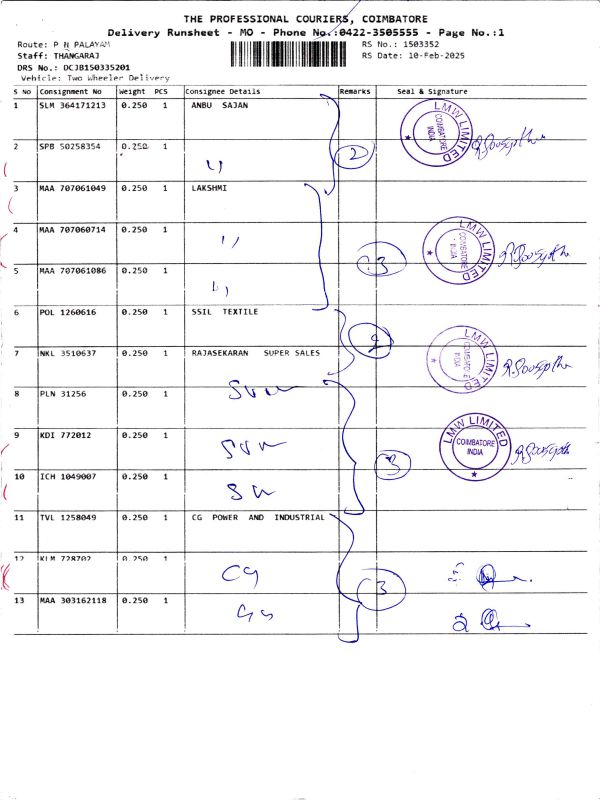 THE PROFESSIONAL COURIERS, COIMBATORE
Delivery Runsheet - MO - Phone No.:0422-3505555 - Page No.:1
Route: P N PALAYAM RS No.: 1503352
Staff: THANGARAJ RS Date: 10-Feb-2025
DRS No.: DCJB150335201
Vehicle: Two Wheeler Delivery
S No Consignment No Weight PCS Consignee Details Remarks Seal & Signature
1 SLM 364171213 0.250 1 ANBU SAJAN
LMW LIMITED COIMBATORE INDIA
2 SPB 50258354 0.250 1 " 2
3 MAA 707061049 0.250 1 LAKSHMI
4 MAA 707060714 0.250 1 "
LMW LIMITED COIMBATORE INDIA
5 MAA 707061086 0.250 1 " 3
6 POL 1260616 0.250 1 SSIL TEXTILE
7 NKL 3510637 0.250 1 RAJASEKARAN SUPER SALES
LMW LIMITED COIMBATORE INDIA
8 PLN 31256 0.250 1
9 KDI 772012 0.250 1
LMW LIMITED COIMBATORE INDIA
10 ICH 1049007 0.250 1 3
11 TVL 1258049 0.250 1 CG POWER AND INDUSTRIAL
12 KLM 728702 0.250 1 CG 3
13 MAA 303162118 0.250 1